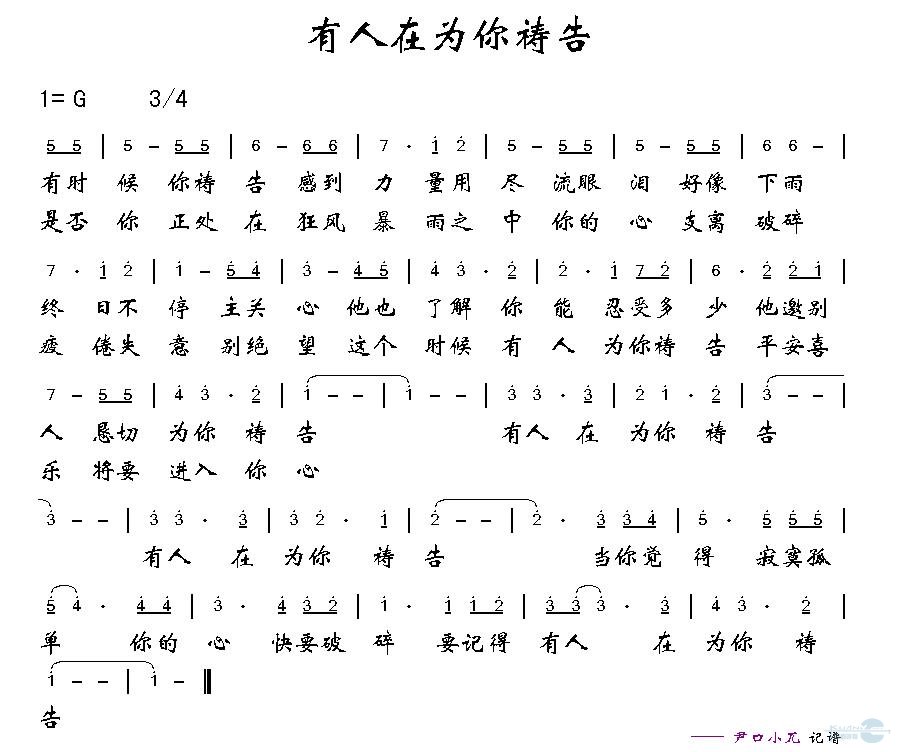 有人在为你祷告
1= G 3/4
5 5 | 5 - 5 5 | 6 - 6 6 | 7 · 1 2 | 5 - 5 5 | 5 - 5 5 | 6 6 - |
有时 候 你祷 告 感到 力 量用 尽 流眼 泪 好像 下雨
是否 你 正处 在 狂风 暴 雨之 中 你的 心 支离 破碎
7 · 1 2 | 1 - 5 4 | 3 - 4 5 | 4 3 · 2 | 2 · 1 7 2 | 6 · 2 2 1 |
终 日不 停 主关 心 他也 了解 你 能 忍受多 少 他邀别
疲 倦失 意 别绝 望 这个 时候 有 人 为你祷 告 平安喜
7 - 5 5 | 4 3 · 2 | 1 - - | 1 - - | 3 3 · 3 | 2 1 · 2 | 3 - - |
人 恳切 为你 祷 告 有人 在 为你 祷 告
乐 将要 进入 你 心
3 - - | 3 3 · 3 | 3 2 · 1 | 2 - - | 2 · 3 3 4 | 5 · 5 5 5 |
有人 在 为你 祷 告 当你觉 得 寂寞孤
5 4 · 4 4 | 3 · 4 3 2 | 1 · 1 1 2 | 3 3 3 · 3 | 4 3 · 2 |
单 你的 心 快要破 碎 要记得 有人 在 为你 祷
1 - - | 1 - ‖
告
—— 尹口小兀 记谱